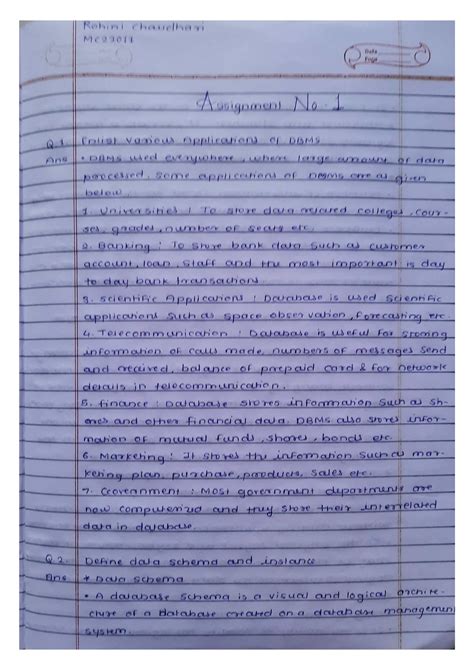 Rohini Chaudhari
Date
Page
Assignment No. 1
Q.1 Enlist various Applications of DBMS
Ans • DBMS used everywhere, where large amount of data
processed, some applications of DBMS are as given
below.
1. Universities : To store data related colleges, cour-
ses, grades, number of seats etc.
2. Banking : To store bank data such as customer
account, loan, staff and the most important is day
to day bank transactions
3. Scientific Applications : Database is used scientific
applications such as space observation, forecasting etc.
4. Telecommunication : Database is useful for storing
information of calls made, numbers of messages send
and received, balance of prepaid card & for network
details in telecommunication.
5. Finance : Database stores information such as sh-
ares and other financial data. DBMS also stores infor-
mation of mutual funds, shares, bonds etc.
6. Marketing : It stores the infomation such as mar-
keting plan, purchase, products, sales etc.
7. Government : Most government departments are
now computerized and they store their interrelated
data in database.
Q.2. Define data schema and instance
Ans * Data schema
• A database schema is a visual and logical archite-
cture of a database created on a database management
system.